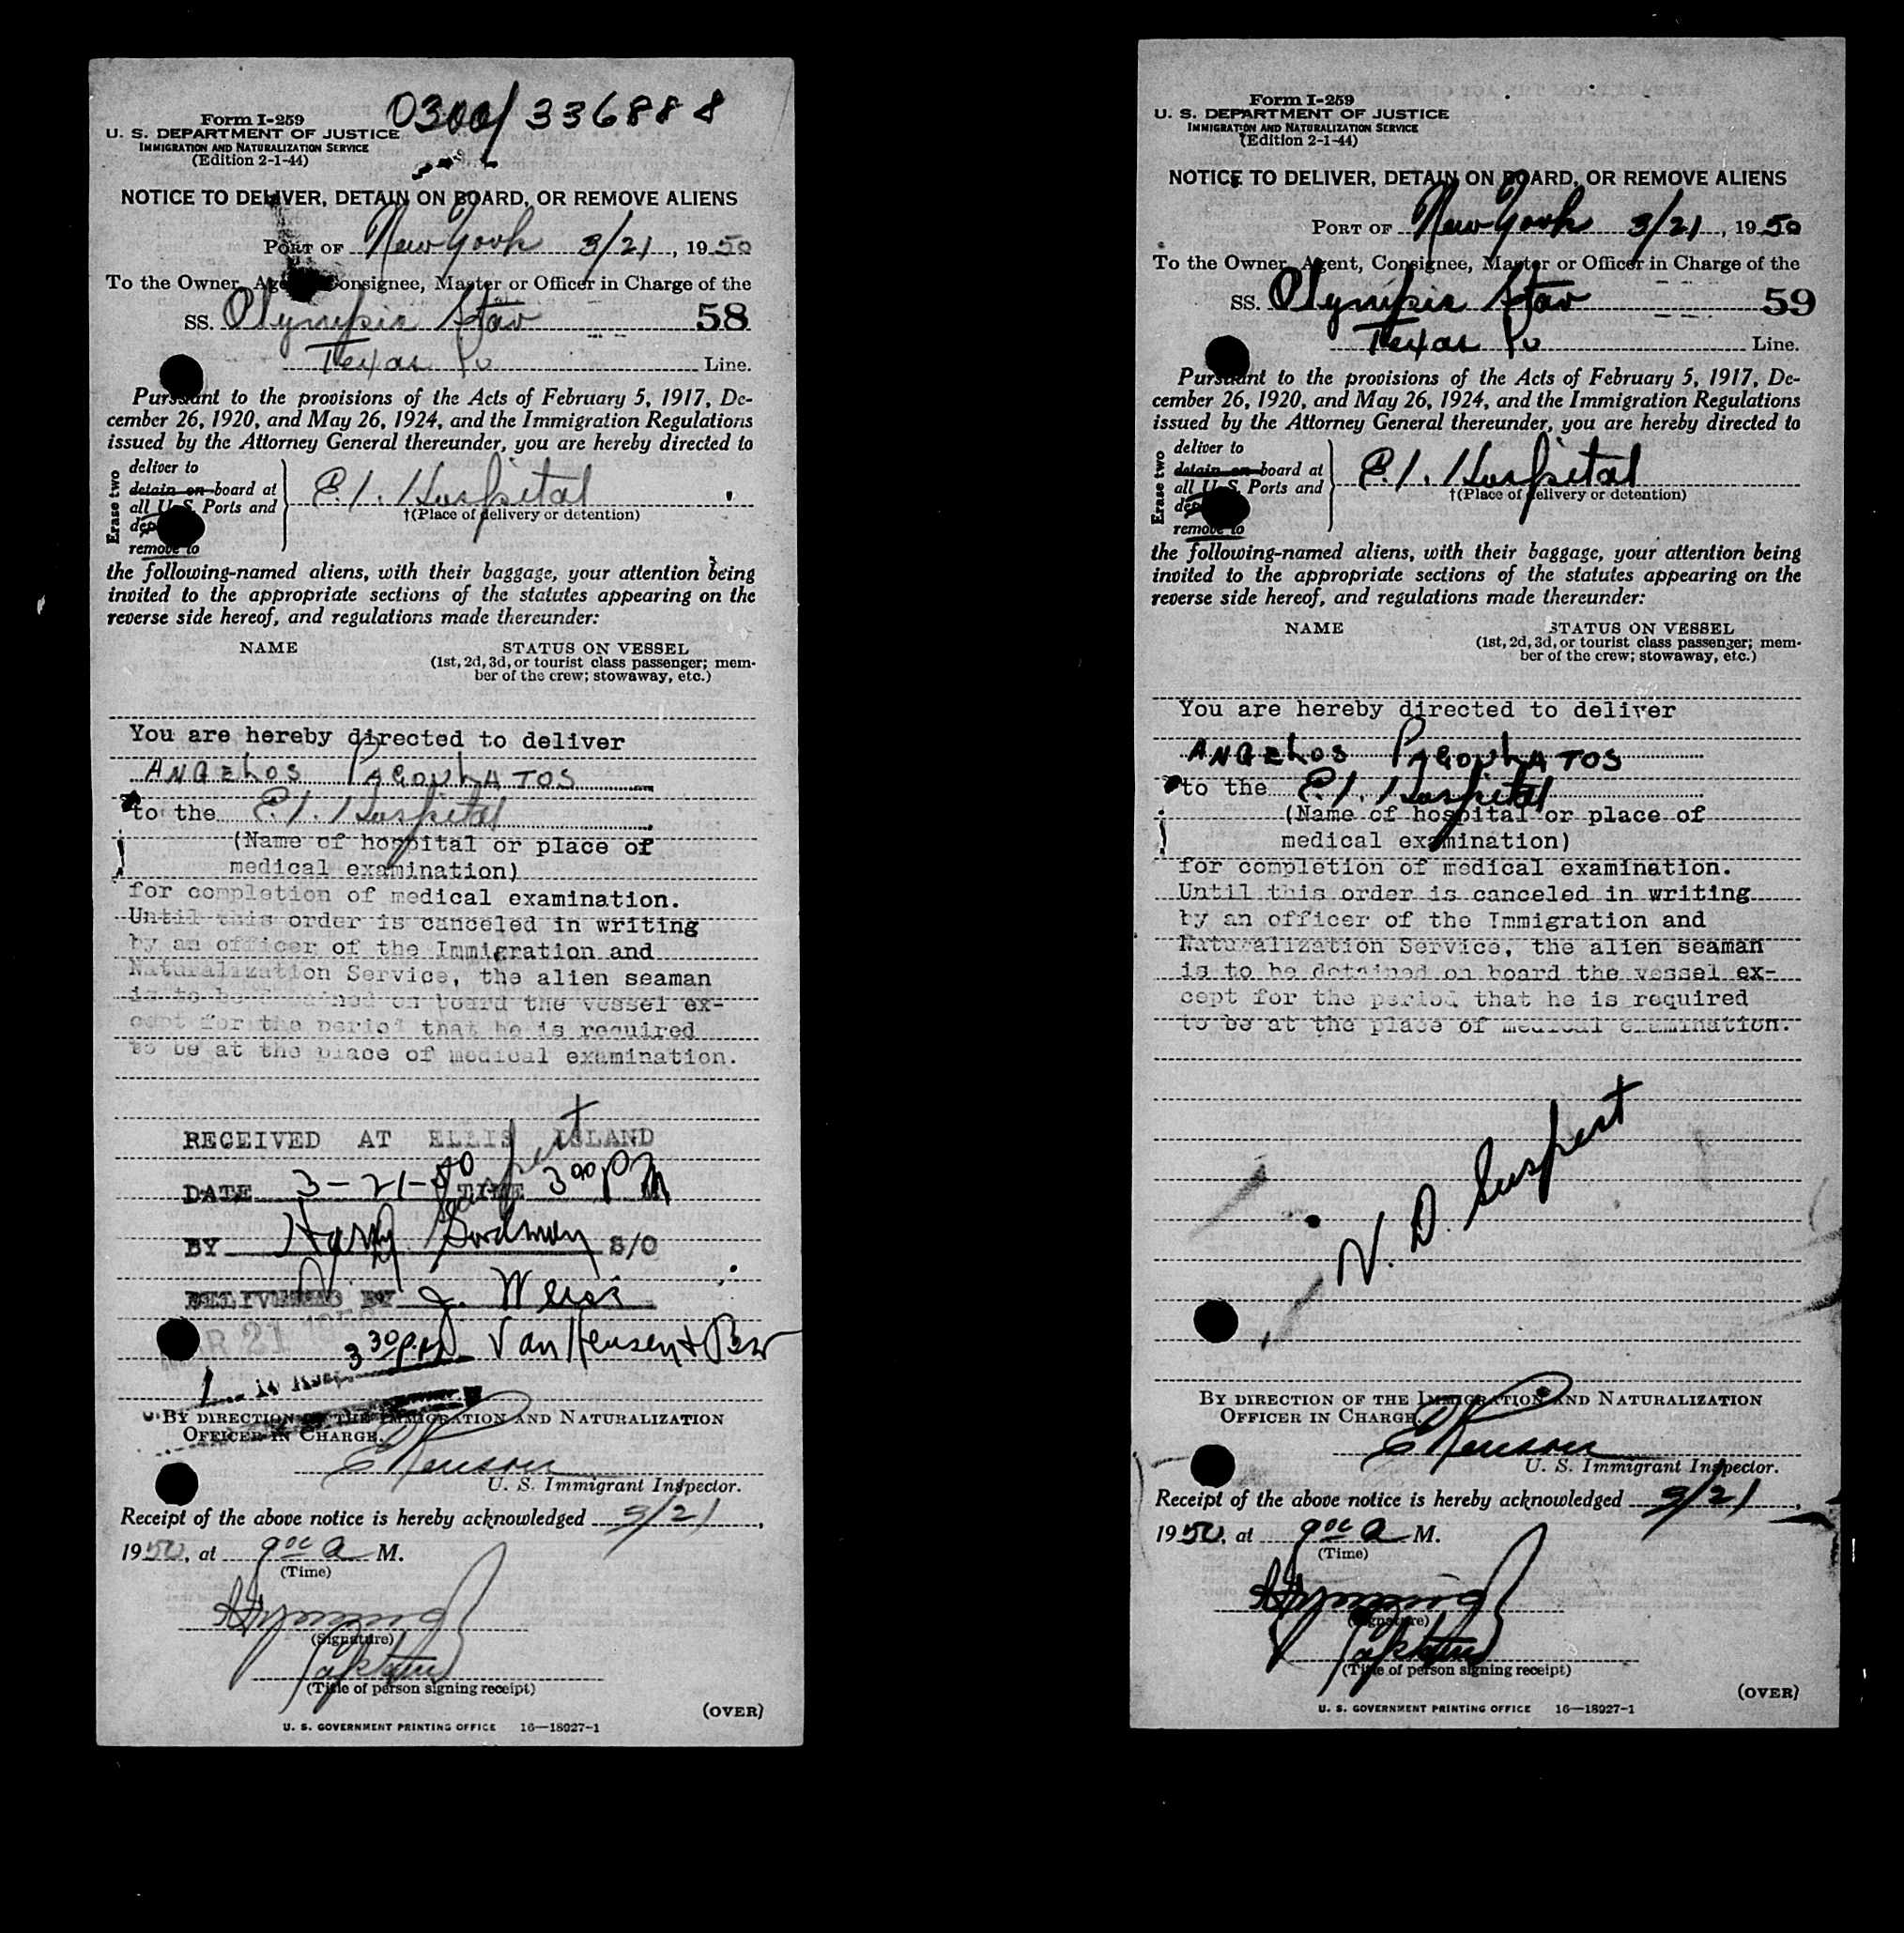 0300/336888
Form I-259
U. S. DEPARTMENT OF JUSTICE
IMMIGRATION AND NATURALIZATION SERVICE
(Edition 2-1-44)
NOTICE TO DELIVER, DETAIN ON BOARD, OR REMOVE ALIENS
PORT OF New York 3/21, 1950
To the Owner, Agent, Consignee, Master or Officer in Charge of the
SS. Olympic Star 58
Texas Co Line.
Pursuant to the provisions of the Acts of February 5, 1917, De-
cember 26, 1920, and May 26, 1924, and the Immigration Regulations
issued by the Attorney General thereunder, you are hereby directed to
Erase two
deliver to
detain on board at
all U. S. Ports and
remove to
E. I. Hospital
†(Place of delivery or detention)
the following-named aliens, with their baggage, your attention being
invited to the appropriate sections of the statutes appearing on the
reverse side hereof, and regulations made thereunder:
NAME STATUS ON VESSEL
(1st, 2d, 3d, or tourist class passenger; mem-
ber of the crew; stowaway, etc.)
You are hereby directed to deliver
ANGELOS PAGOULATOS
to the E. I. Hospital
(Name of hospital or place of
medical examination)
for completion of medical examination.
Until this order is canceled in writing
by an officer of the Immigration and
Naturalization Service, the alien seaman
is to be detained on board the vessel ex-
cept for the period that he is required
to be at the place of medical examination.
RECEIVED AT ELLIS ISLAND
DATE 3-21-50 TIME 3 00 PM
BY Harry Goodman S/O
DELIVERED BY J. Weiss
MAR 21 1950
3 30 P.M. Van Hensen &
BY DIRECTION OF THE IMMIGRATION AND NATURALIZATION
OFFICER IN CHARGE.
U. S. Immigrant Inspector.
Receipt of the above notice is hereby acknowledged 3/21,
1950, at 9 00 A M.
(Time)
(Signature)
Captain
(Title of person signing receipt)
(OVER)
U. S. GOVERNMENT PRINTING OFFICE 16—18027-1
Form I-259
U. S. DEPARTMENT OF JUSTICE
IMMIGRATION AND NATURALIZATION SERVICE
(Edition 2-1-44)
NOTICE TO DELIVER, DETAIN ON BOARD, OR REMOVE ALIENS
PORT OF New York 3/21, 1950
To the Owner, Agent, Consignee, Master or Officer in Charge of the
SS. Olympic Star 59
Texas Co Line.
Pursuant to the provisions of the Acts of February 5, 1917, De-
cember 26, 1920, and May 26, 1924, and the Immigration Regulations
issued by the Attorney General thereunder, you are hereby directed to
Erase two
deliver to
detain on board at
all U. S. Ports and
remove to
E. I. Hospital
†(Place of delivery or detention)
the following-named aliens, with their baggage, your attention being
invited to the appropriate sections of the statutes appearing on the
reverse side hereof, and regulations made thereunder:
NAME STATUS ON VESSEL
(1st, 2d, 3d, or tourist class passenger; mem-
ber of the crew; stowaway, etc.)
You are hereby directed to deliver
ANGELOS PAGOULATOS
to the E. I. Hospital
(Name of hospital or place of
medical examination)
for completion of medical examination.
Until this order is canceled in writing
by an officer of the Immigration and
Naturalization Service, the alien seaman
is to be detained on board the vessel ex-
cept for the period that he is required
to be at the place of medical examination.
V. D. Suspect
BY DIRECTION OF THE IMMIGRATION AND NATURALIZATION
OFFICER IN CHARGE.
U. S. Immigrant Inspector.
Receipt of the above notice is hereby acknowledged 3/21,
1950, at 9 00 A M.
(Time)
(Signature)
Captain
(Title of person signing receipt)
(OVER)
U. S. GOVERNMENT PRINTING OFFICE 16—18027-1